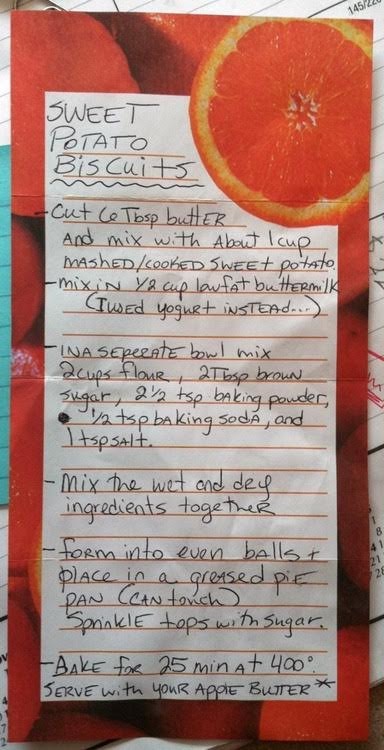 145/220
SWEET
POTATO
BISCUITS
- Cut 6 Tbsp buttER
and mix with About 1 cup
MASHED/COOKED SWEET potato.
- mix iN 1/2 cup lowfat buttermilk
(I used yogurt iNSTEAD...)
- IN A SEPERATE bowl mix
2 cups flour, 2 Tbsp brown
sugar, 2 1/2 tsp bAking powder,
1/2 tsp bAking sodA, and
1 tsp sAlt.
- Mix the wet and dry
ingredients togetheR
- form into even balls +
place in a greased piE
pan (CAN touch)
Sprinkle tops with sugar.
- BAKE for 25 min At 400°.
SERVE with youR ApplE BUTTER *